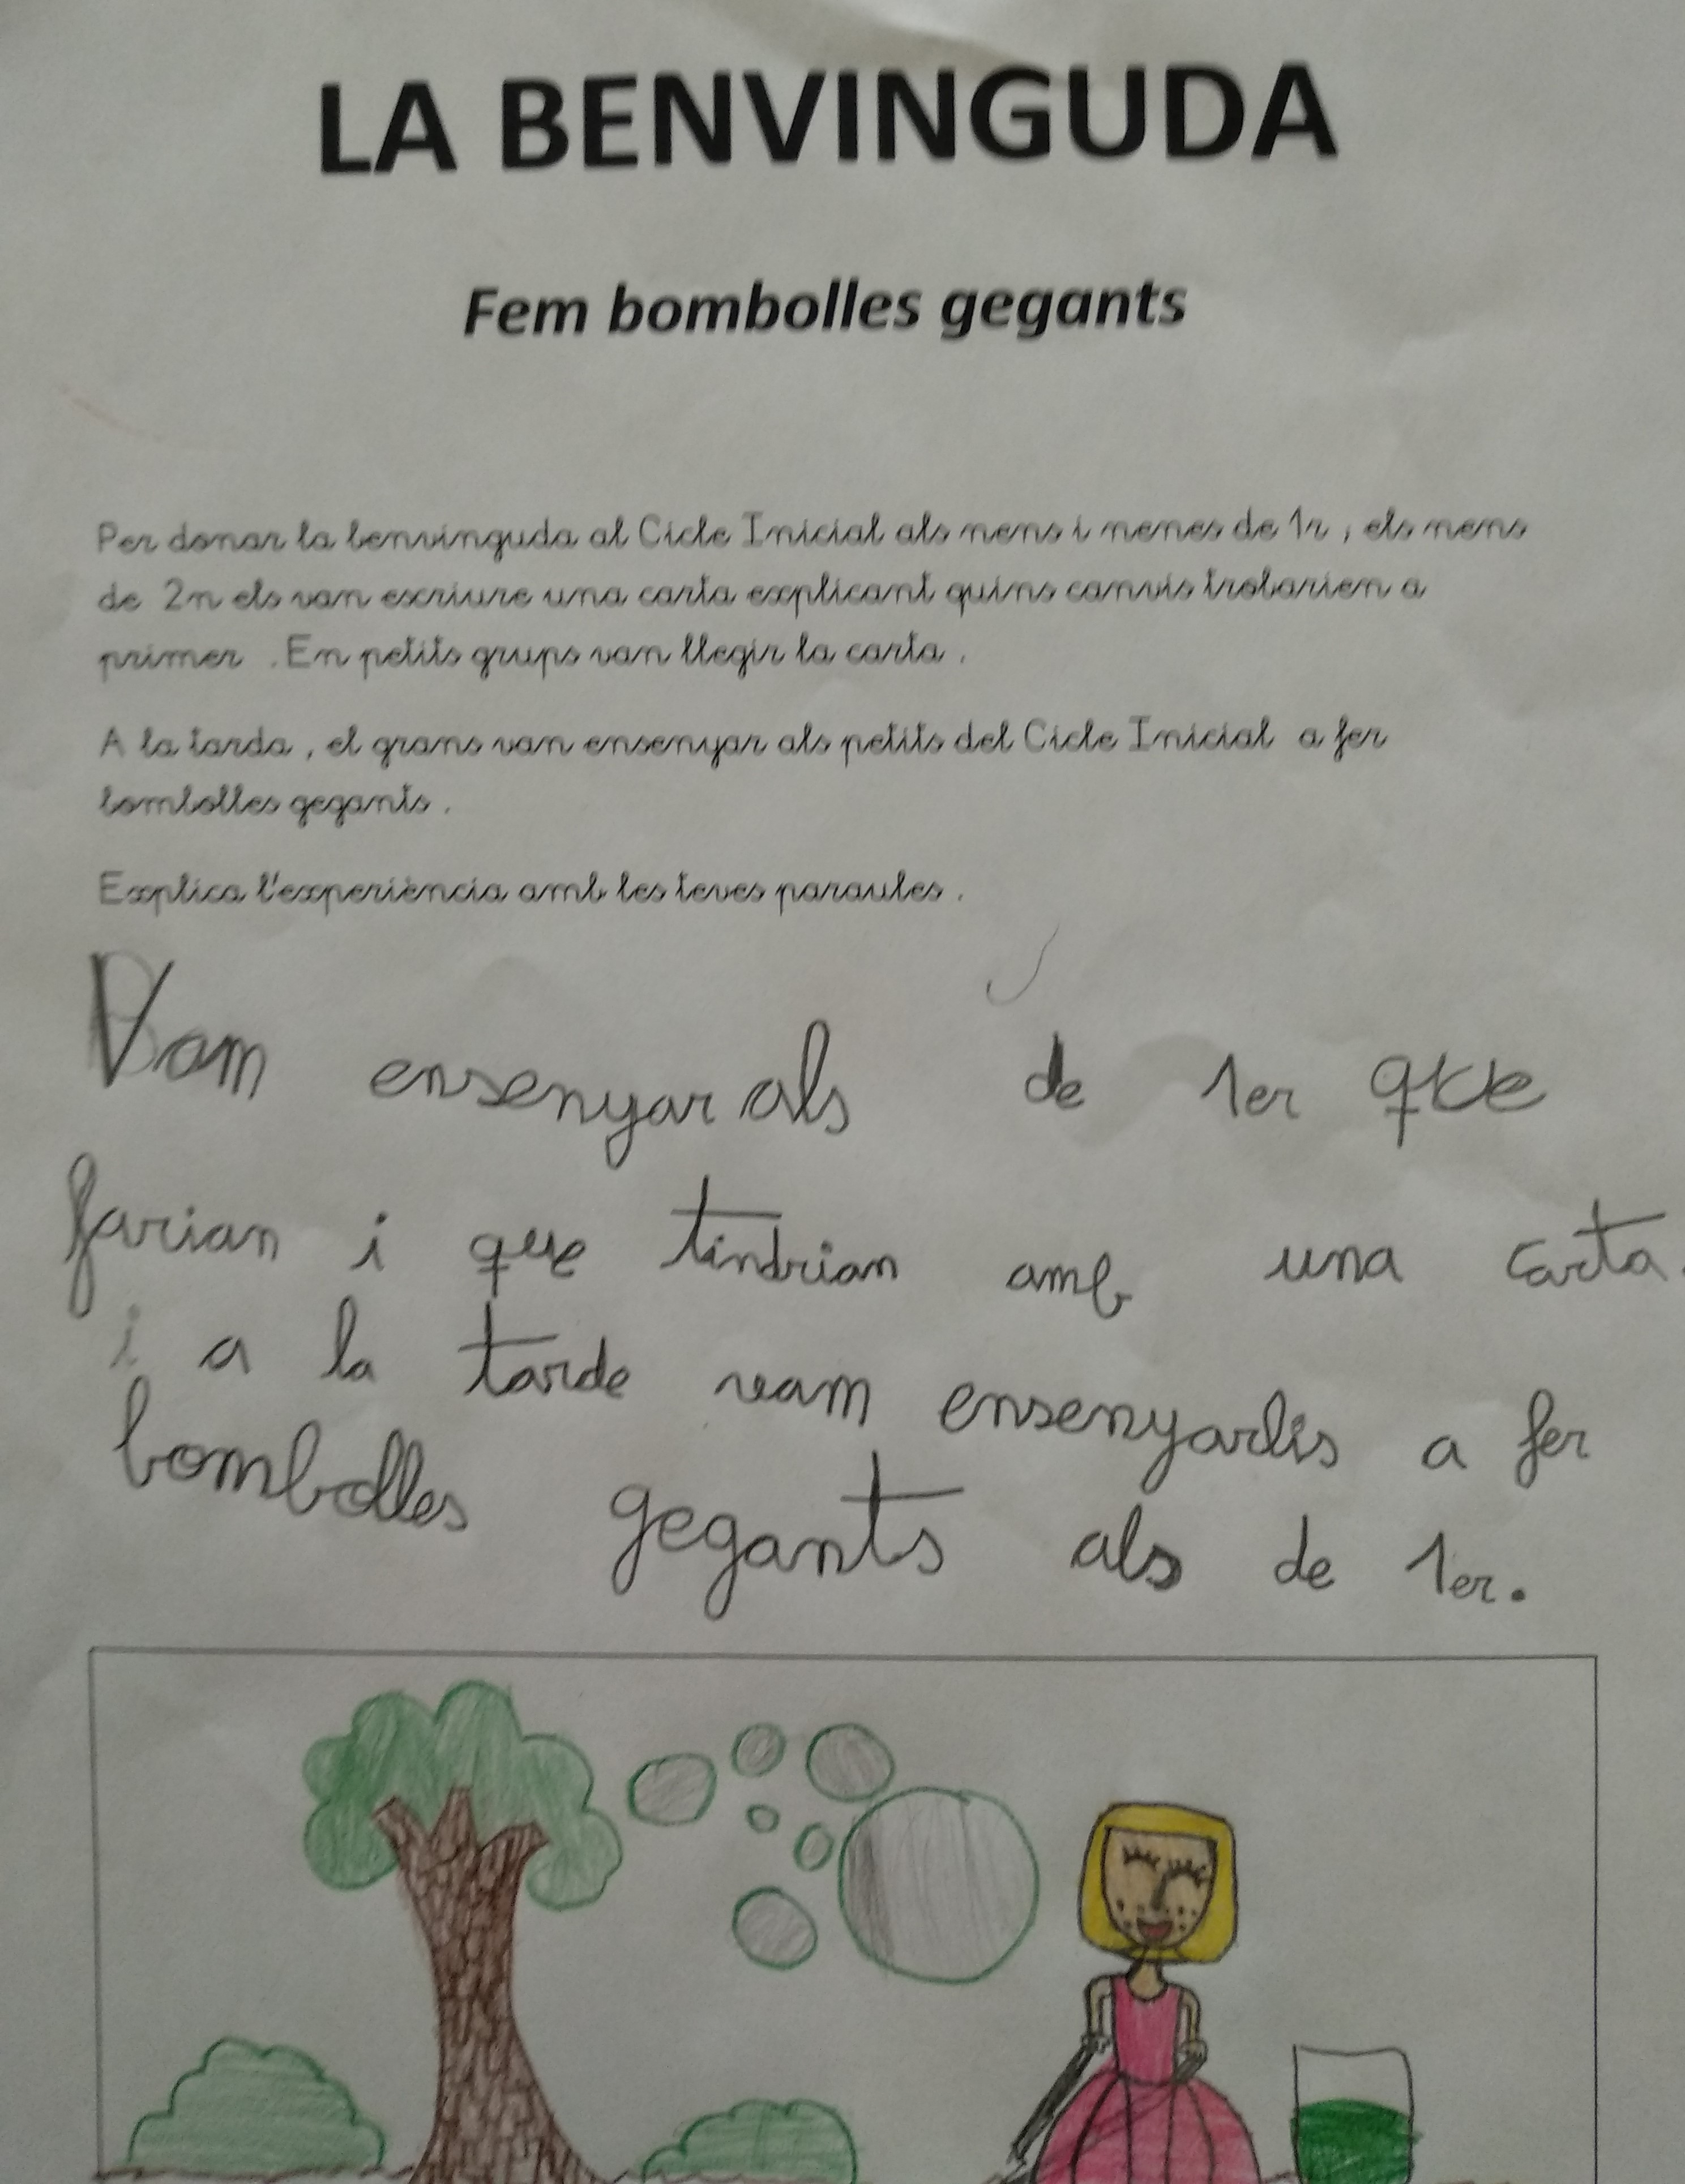 LA BENVINGUDA
Fem bombolles gegants
Per donar la benvinguda al Cicle Inicial als nens i nenes de 1r , els nens
de 2n els van escriure una carta explicant quins canvis trobarien a
primer . En petits grups van llegir la carta .
A la tarda , el grans van ensenyar als petits del Cicle Inicial a fer
bombolles gegants .
Explica l'experiència amb les teves paraules .
Vam ensenyar als de 1er que
farian i que tindrian amb una carta.
i a la tarde vam ensenyarlis a fer
bombolles gegants als de 1er.